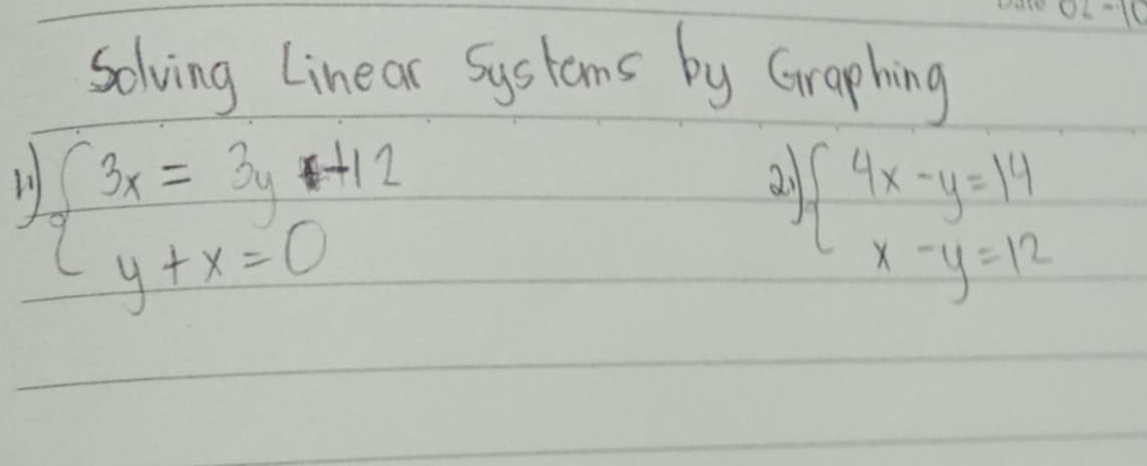 Date 02-10
Solving Linear Systems by Graphing
1.) { 3x = 3y +12
y + x = 0
2.) { 4x - y = 14
x - y = 12